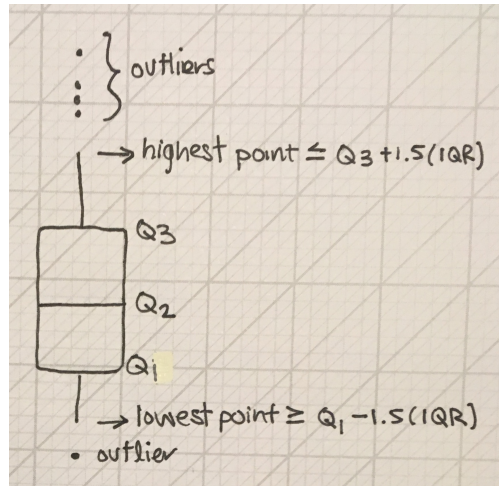 outliers
→ highest point ≤ Q3 + 1.5(IQR)
Q3
Q2
Q1
→ lowest point ≥ Q1 - 1.5(IQR)
• outlier